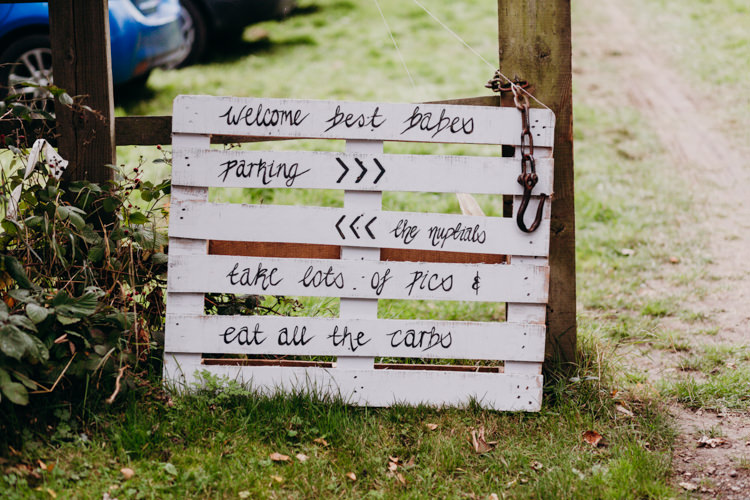 Welcome best babes
parking >>>
<<< the nuptials
take lots of pics &
eat all the carbs